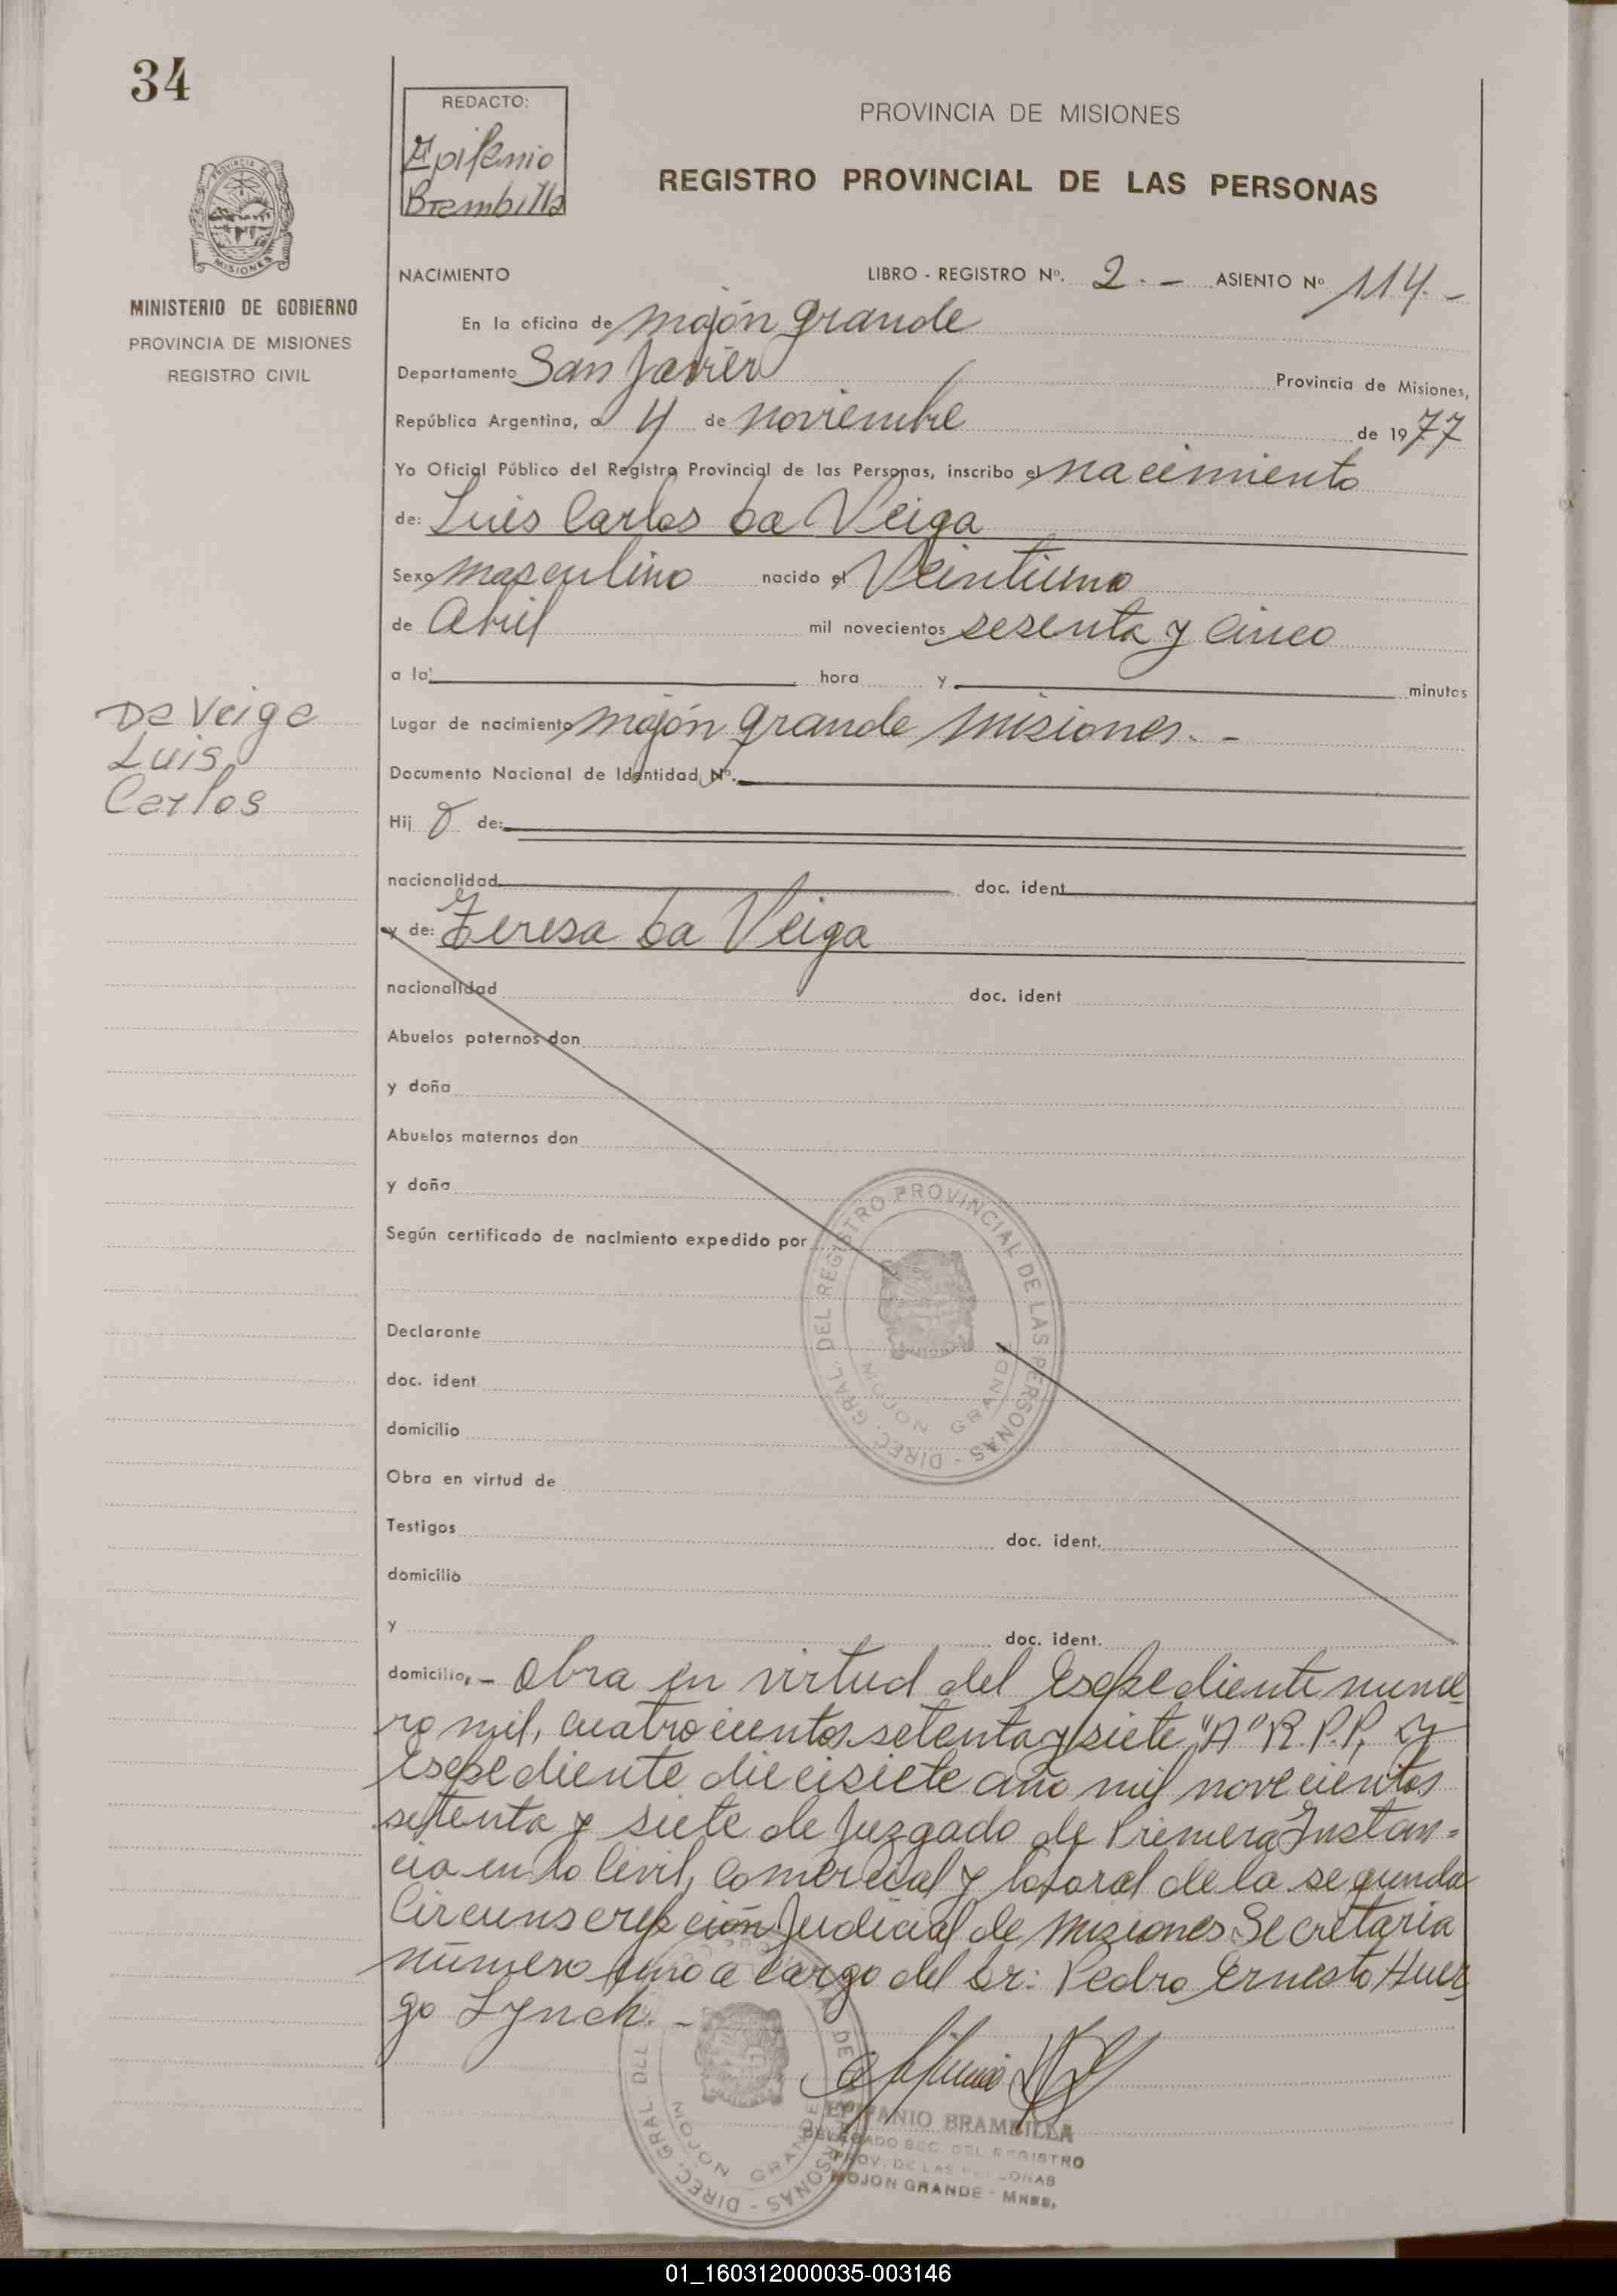 34
REDACTO:
Epifanio
Brambilla
PROVINCIA DE MISIONES
REGISTRO PROVINCIAL DE LAS PERSONAS
MISIONES
MINISTERIO DE GOBIERNO
PROVINCIA DE MISIONES
REGISTRO CIVIL
NACIMIENTO LIBRO - REGISTRO Nº. 2.- ASIENTO Nº 114.-
En la oficina de mojón grande
Departamento San Javier Provincia de Misiones,
República Argentina, a 4 de noviembre de 1977
Yo Oficial Público del Registro Provincial de las Personas, inscribo el nacimiento
de: Luis Carlos Da Veiga
Sexo masculino nacido el Veintiuno
de Abril mil novecientos sesenta y cinco
a la hora y minutos
Da Veiga
Luis
Carlos
Lugar de nacimiento mojón grande misiones.-
Documento Nacional de Identidad Nº.
Hij o de:
nacionalidad doc. ident
y de: Teresa Da Veiga
nacionalidad doc. ident
Abuelos paternos don
y doña
Abuelos maternos don
y doña
Según certificado de nacimiento expedido por
Declarante
doc. ident
domicilio
Obra en virtud de
Testigos doc. ident.
domicilio
y doc. ident.
DIREC. GRAL. DEL REGISTRO PROVINCIAL DE LAS PERSONAS -
MOJON GRANDE
domicilio.- Obra en virtud del Esepediente nume
ro mil, cuatrocientos setenta y siete "A" R.P.P, y
Esepediente diecisiete año mil novecientos
setenta y siete de Juzgado de Primera Instan-
cia en lo Civil, Comercial y laboral de la segunda
Circunscripción Judicial de Misiones Secretaria
número uno a cargo del Dr: Pedro Ernesto Huer
go Lynch.-
EPIFANIO BRAMBILLA
DELEGADO SEC. DEL REGISTRO
PROV. DE LAS PERSONAS
MOJON GRANDE - MNES.
MOJON GRANDE
01_160312000035-003146